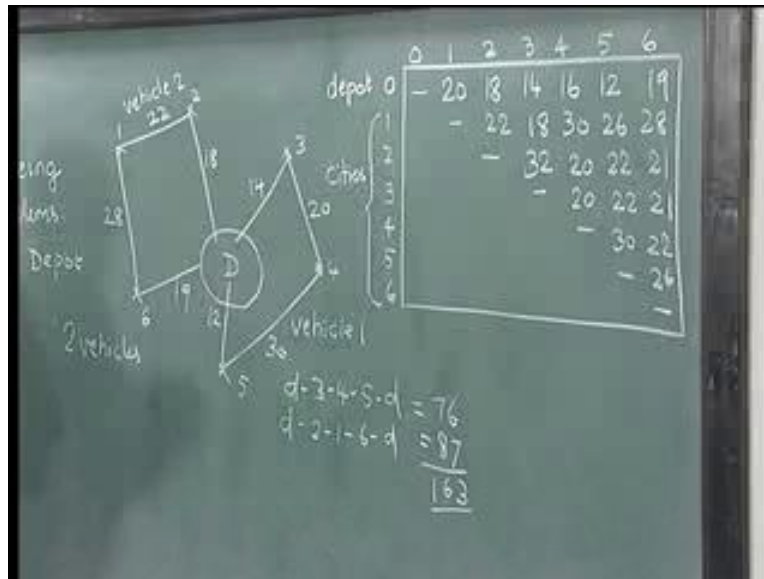 vehicle 2
22
1
2
28
18
6
19
D
12
5
14
3
20
4
30
vehicle 1
Depot
2 vehicles
0 1 2 3 4 5 6
depot 0 - 20 18 14 16 12 19
Cities
1 - 22 18 30 26 28
2 - 32 20 22 21
3 - 20 22 21
4 - 30 22
5 - 26
6 -
d-3-4-5-d = 76
d-2-1-6-d = 87
163